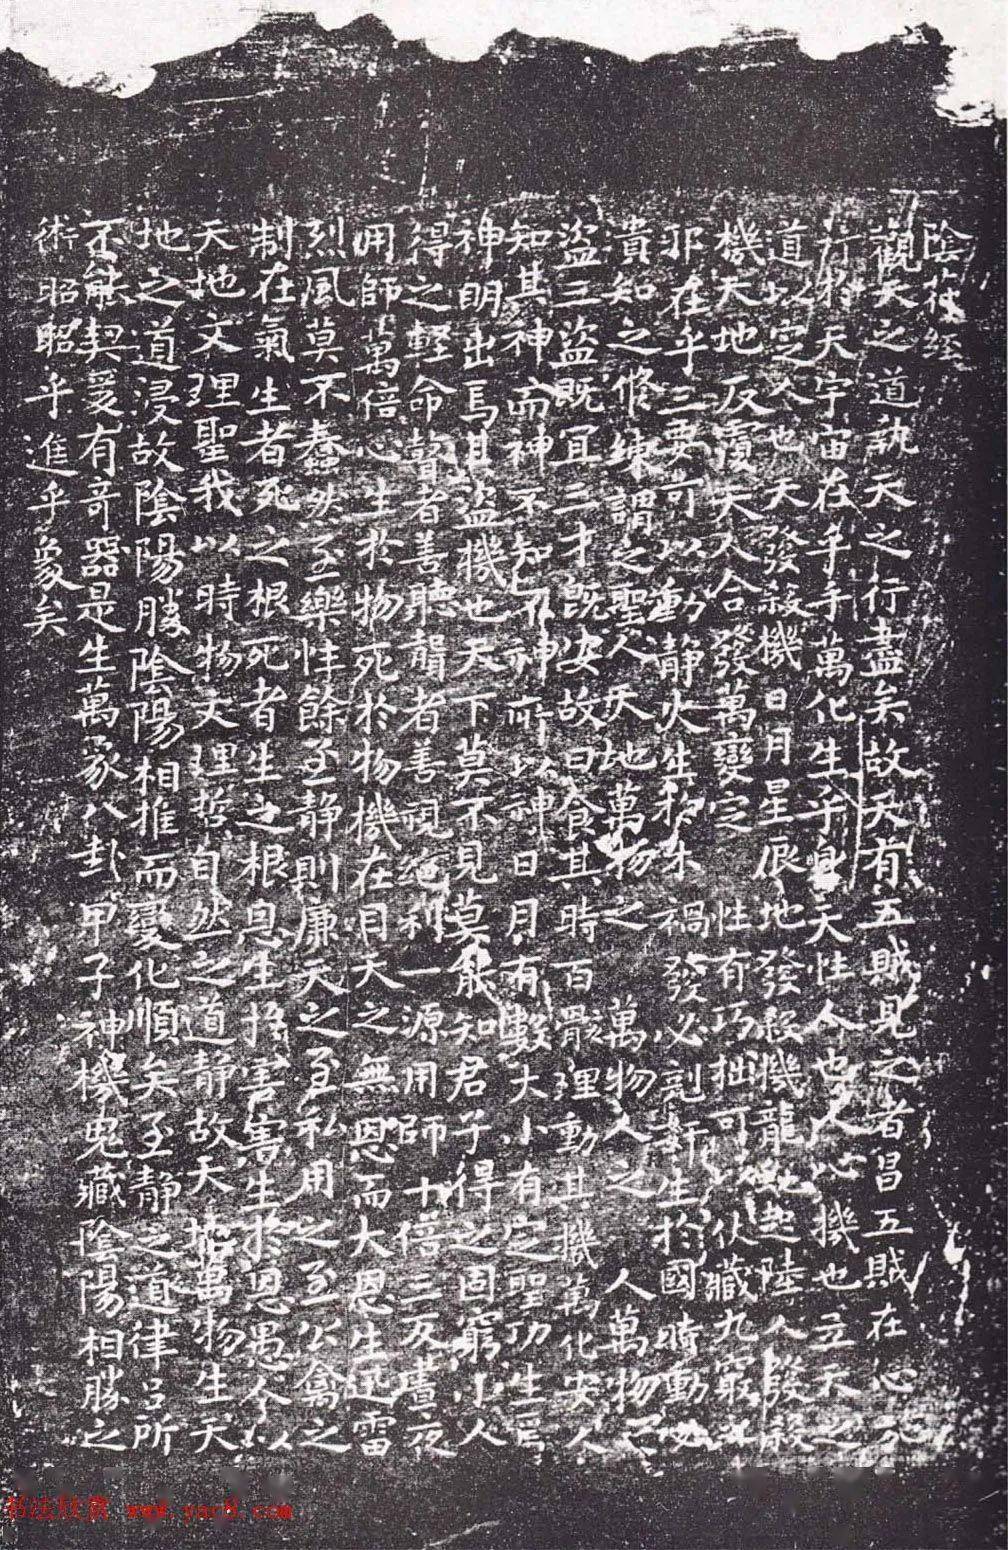 陰符經
觀天之道執天之行盡矣故天有五賊見之者昌五賊在心施
行於天宇宙在乎手萬化生乎身天性人也人心機也立天之
道以定人也天發殺機日月星辰地發殺機龍蛇起陸人發殺
機天地反覆天人合發萬變定 性有巧拙可以伏藏九竅之
邪在乎三要可以動靜火生於木禍發必剋姧生於國時動必
潰知之修煉謂之聖人天地萬物之 萬物人之 人萬物之
盜三盜既宜三才既安故曰食其時百骸理動其機萬化安人
知其神而神不知不神所以神日月有數大小有定聖功生焉
神明出焉其盜機也天下莫不見莫能知君子得之固窮小人
得之輕命瞽者善聽聾者善視絕利一源用師十倍三反晝夜
用師萬倍心生於物死於物機在目天之無恩而大恩生迅雷
烈風莫不蠢然至樂性餘至靜則廉天之至私用之至公禽之
制在氣生者死之根死者生之根恩生於害害生於恩愚人以
天地文理聖我以時物文理哲自然之道靜故天地萬物生天
地之道浸故陰陽勝陰陽相推而變化順矣至靜之道律呂所
不能契爰有奇器是生萬象八卦甲子神機鬼藏陰陽相勝之
術昭昭乎進乎象矣
书法欣赏 www.yac8.com